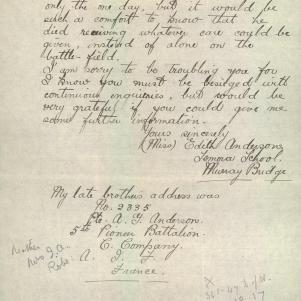 only the one day, but it would be
such a comfort to know that he
died receiving whatever care could be
given, instead of alone on the
battle-field.
I am sorry to be troubling you for
I know you must be besieged with
continuous inquiries, but would be
very grateful if you could give me
some further information.
Yours sincerely
(Miss) Edith Anderson,
School.
Murray Bridge
My late brother's address was
No. 2335
Pte. A. G. Anderson.
5th Pioneer Battalion.
C. Company.
A. I. F
France.
Mother
Mrs